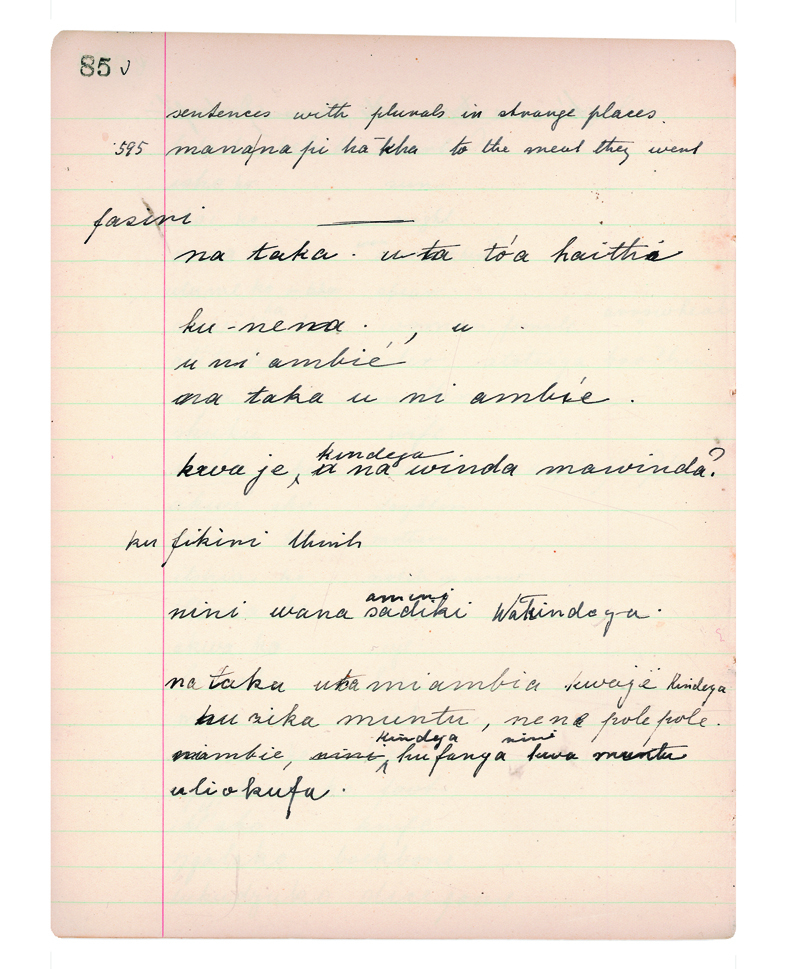 85 v
sentences with plurals in strange places.
595 mana/na pi ha kha to the meat they went
fasini
na taka. uta tóa haithia
ku-nena. , u .
u ni ambié
na taka u ni ambie.
kwaje, kindega a na winda mawinda?
ku fikini
nini wana sadiki amini Wakindega.
na taka uta miambia kwaje Kindega
ku zika muntu, nene pole pole.
niambie, nini, kindega kufanya nini kwa muntu
uliokufa.